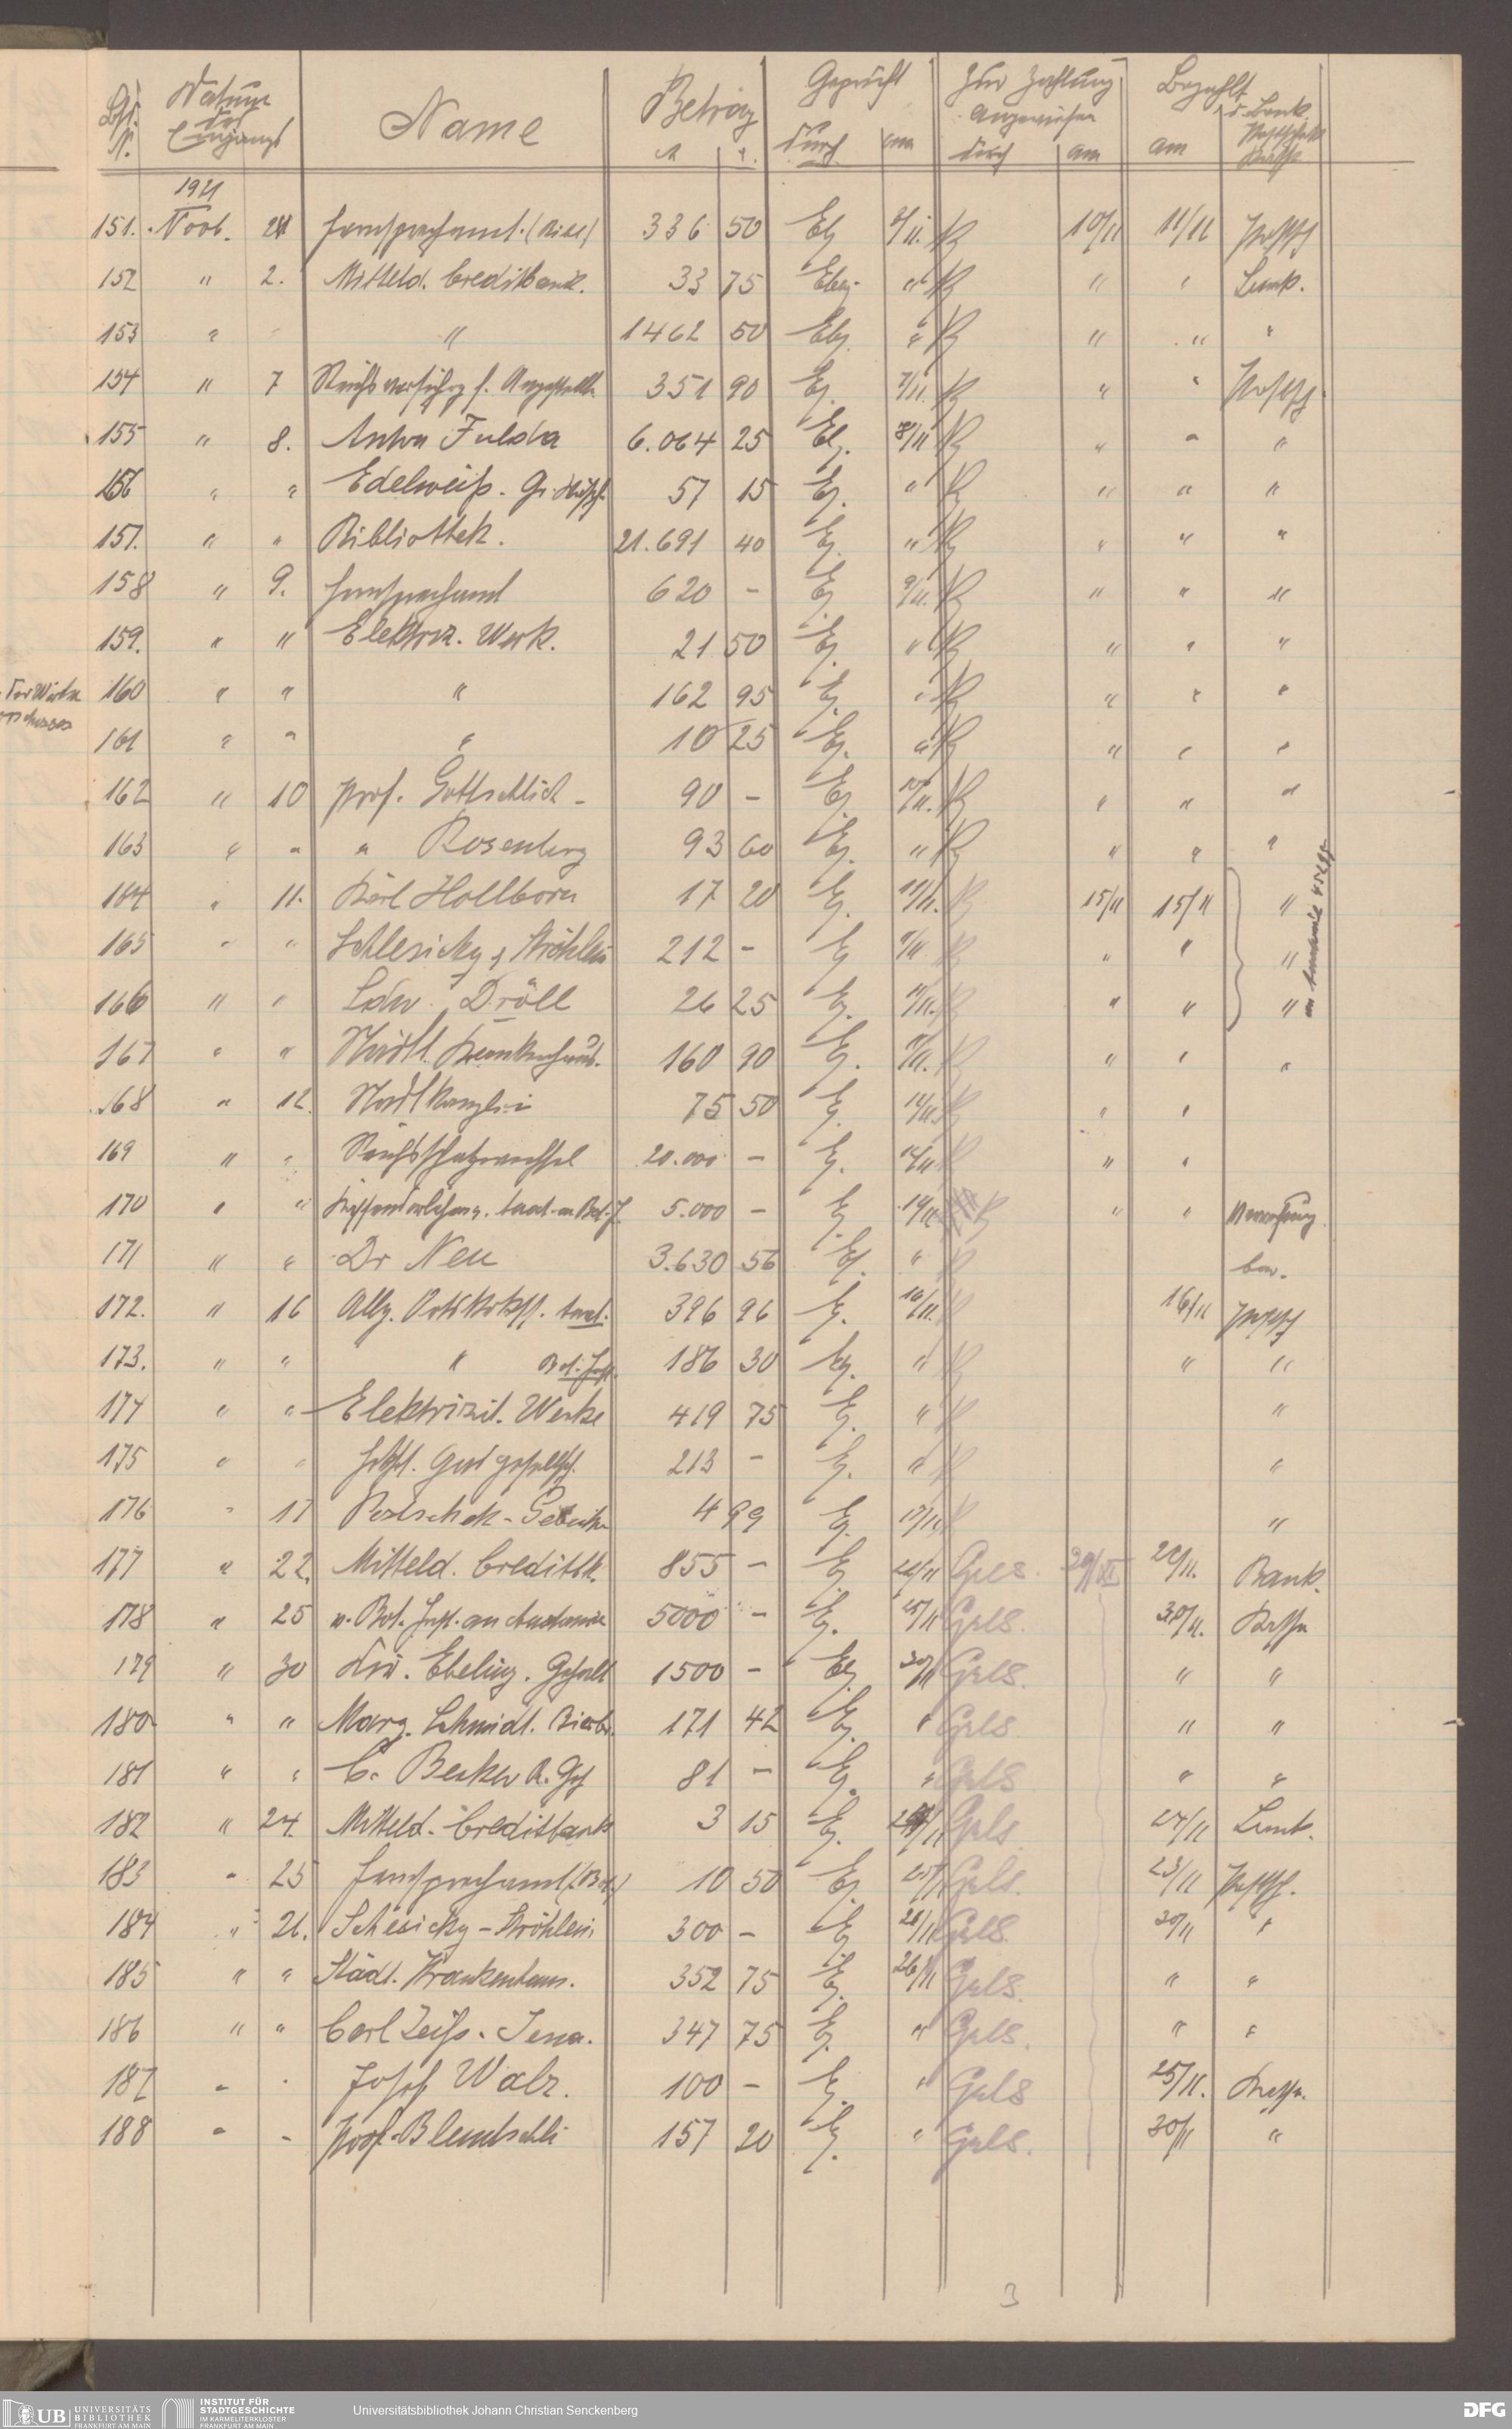 Lfd. N. Datum des Eingangs Name Betrag M ₰. Geprüft durch am Zur Zahlung angewiesen durch am Bezahlt am d. Bank Postscheck Kasse
1921
151. Novb. 24 Fernsprechamt. (Bibl) 336 50 Eb 2/11. 10/11 11/11 Postsch
152 " 2. Mitteld. Creditbank. 33 75 Ebg. " " " Bank.
153 " " 1462 50 Ebg. " " " "
154 " 7 Reichsversichg f. Angestellte 351 90 Eg. 7/11. " " Postsch.
155 " 8. Anton Fulda 6.064 25 Eg. 8/11 " " "
156 " " Edelweiß. Gr. 57 15 Eg. " " " "
157. " " Bibliothek. 21.691 40 Eg. " " " "
158 " 9. Fernsprechamt 620 - Eg. 9/11. " " "
159. " " Elektriz. Werk. 21 50 Eg. " " " "
160 " " " 162 95 Eg. " " " "
161 " " " 10 25 Eg. " " " "
162 " 10 Prof. Gottschlich - 90 - Eg. 10/11. " " "
163 " " " Rosenberg 93 60 Eg. " " " "
164 " 11. Karl Hollborn 17 20 Eg. 11/11. 15/11 15/11 "
165 " " Schlesicky & Ströhlein 212 - Eg 11/11 " " "
166 " " Ldw. Dröll 26 25 Eg. 11/11. " " "
167 " " Städt. Krankenhaus. 160 90 Eg. 11/11. " " "
168 " 12. Stadtkanzlei 75 50 Eg. 12/11. " "
169 " " Reichsschatzwechsel 20.000 - Eg. 14/11 " "
170 " " 5.000 - Eg. 14/11. " "
171 " " Dr Neu 3.630 56 Eg. " bar.
172. " 16 Allg. Ortskrkss. 396 96 Eg. 16/11. 16/11 Postsch
173. " " " Bot. Inst. 186 30 Eg. " " "
174 " " Elektrizit. Werke 419 75 Eg. " "
175 " " Gasgesellsch. 213 - Eg. " "
176 " 17 Postscheck - 4 99 Eg. 17/11 "
177 " 22. Mitteld. Creditbk. 855 - Eg 22/11 Gels. 29/XI 22/11. Bank.
178 " 25 v. Bot. Inst. an Anatomie 5000 - Eg. 25/11 Gels. 30/11. Kasse
179 " 30 Ebeling. Gehalt 1500 - Eg. 30/11 Gels. " "
180 " " Marg. Schmidt. 171 42 Eg. " Gels " "
181 " " C. Becker 81 - Eg. " Gels " "
182 " 24. Mitteld. Creditbank 3 15 Eg. Gels 24/11 Bank.
183 " 25 Fernsprechamt 10 50 Eg. 25/11 Gels. 23/11 Postsch.
184 " 26. Schlesicky - Ströhlein 300 - Eg 26/11 Gels. 30/11 "
185 " " Städt. Krankenhaus. 352 75 Eg. 26/11 Gels. " "
186 " " Carl Zeiss. Jena. 347 75 Eg. " Gels. " "
187 " " Josef Walz. 100 - Eg. " Gels 25/11. Kasse.
188 " " Prof. Bluntschli 157 20 Eg. " Gels. 30/11 "
3
UB UNIVERSITÄTS BIBLIOTHEK FRANKFURT AM MAIN
INSTITUT FÜR STADTGESCHICHTE IM KARMELITERKLOSTER FRANKFURT AM MAIN
Universitätsbibliothek Johann Christian Senckenberg
DFG